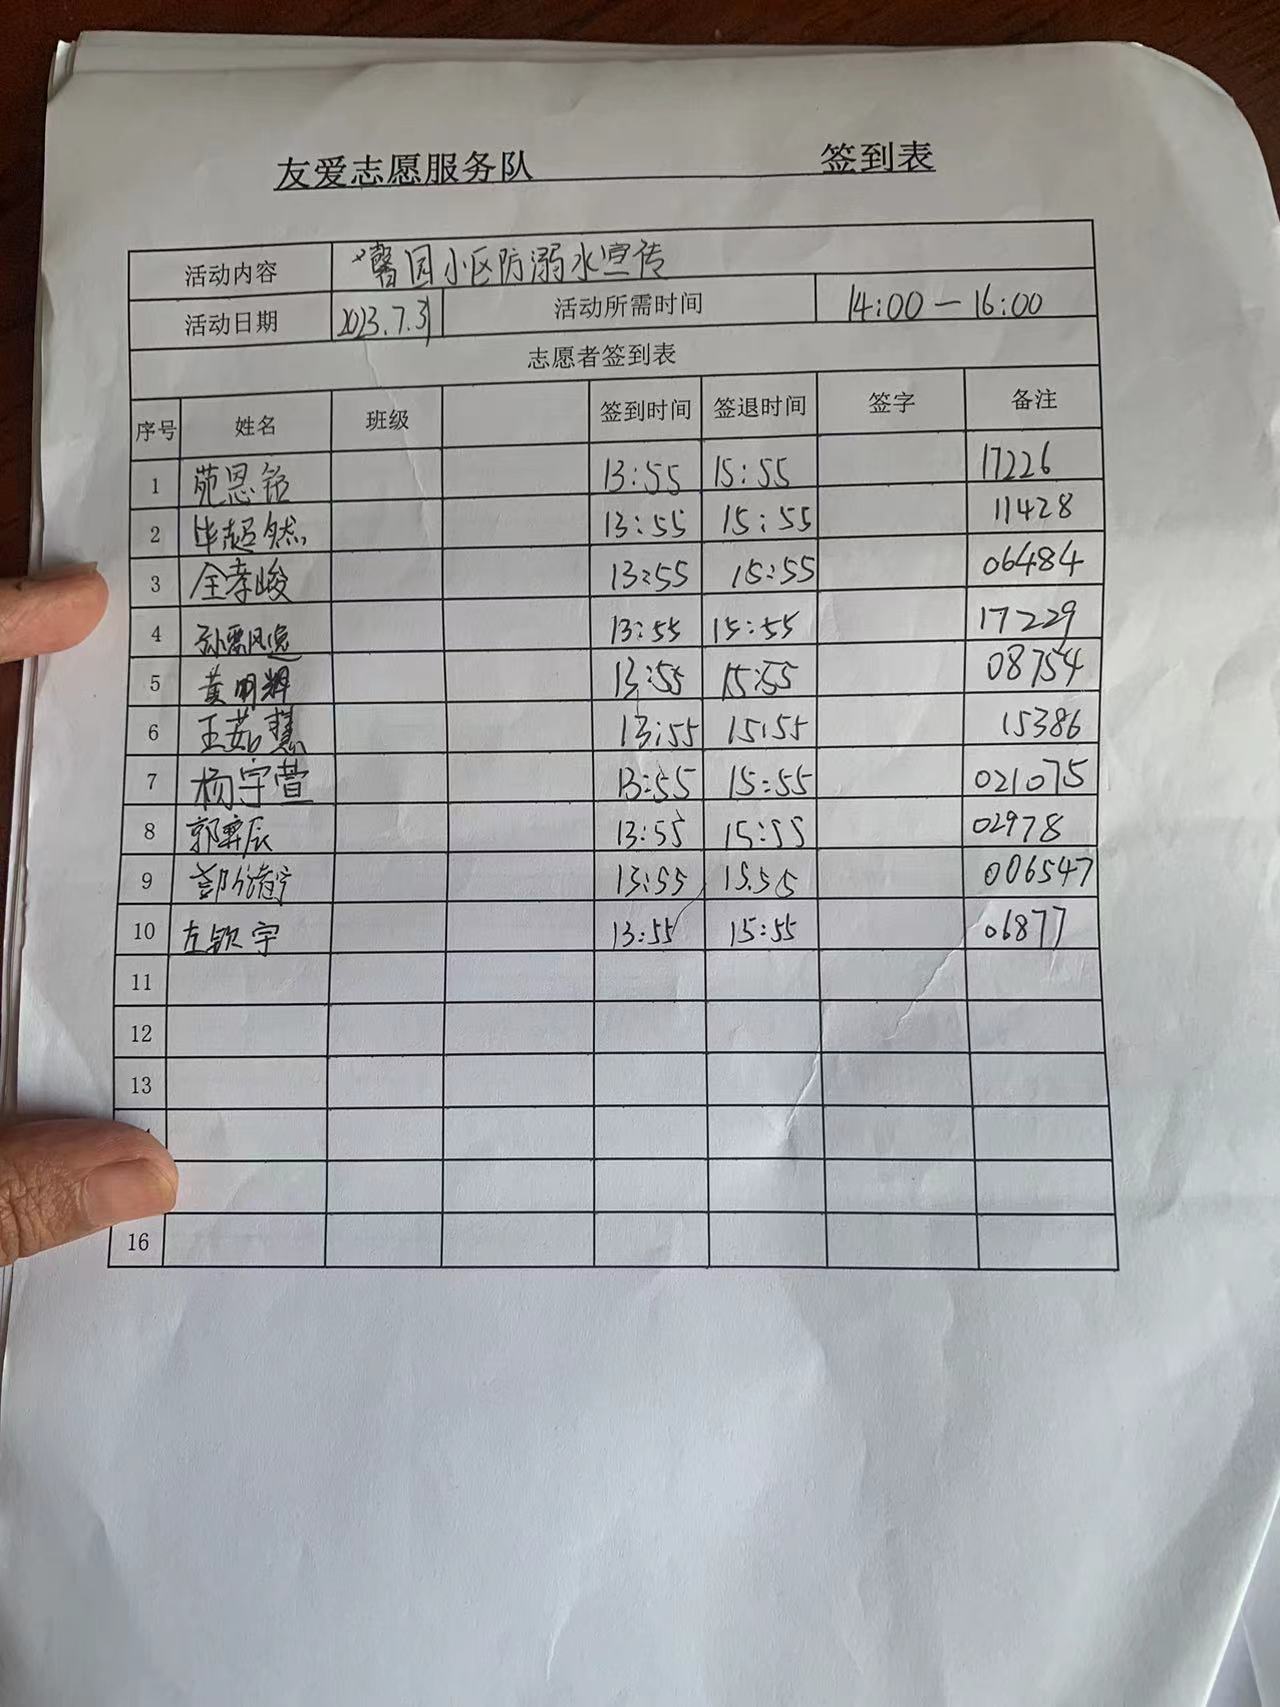 友爱志愿服务队 签到表
活动内容 馨园小区防溺水宣传
活动日期 2023.7.31 活动所需时间 14:00—16:00
志愿者签到表
序号 姓名 班级 签到时间 签退时间 签字 备注
1 苑恩铭 13:55 15:55 17226
2 毕超然 13:55 15:55 11428
3 全孝峻 13:55 15:55 06484
4 孙飘逸 13:55 15:55 17229
5 黄明辉 13:55 15:55 08754
6 王茹慧 13:55 15:55 15386
7 杨宇萱 13:55 15:55 021075
8 郭霁辰 13:55 15:55 02978
9 13:55 15.55 006547
10 左钦宇 13:55 15:55 06877
11
12
13
16